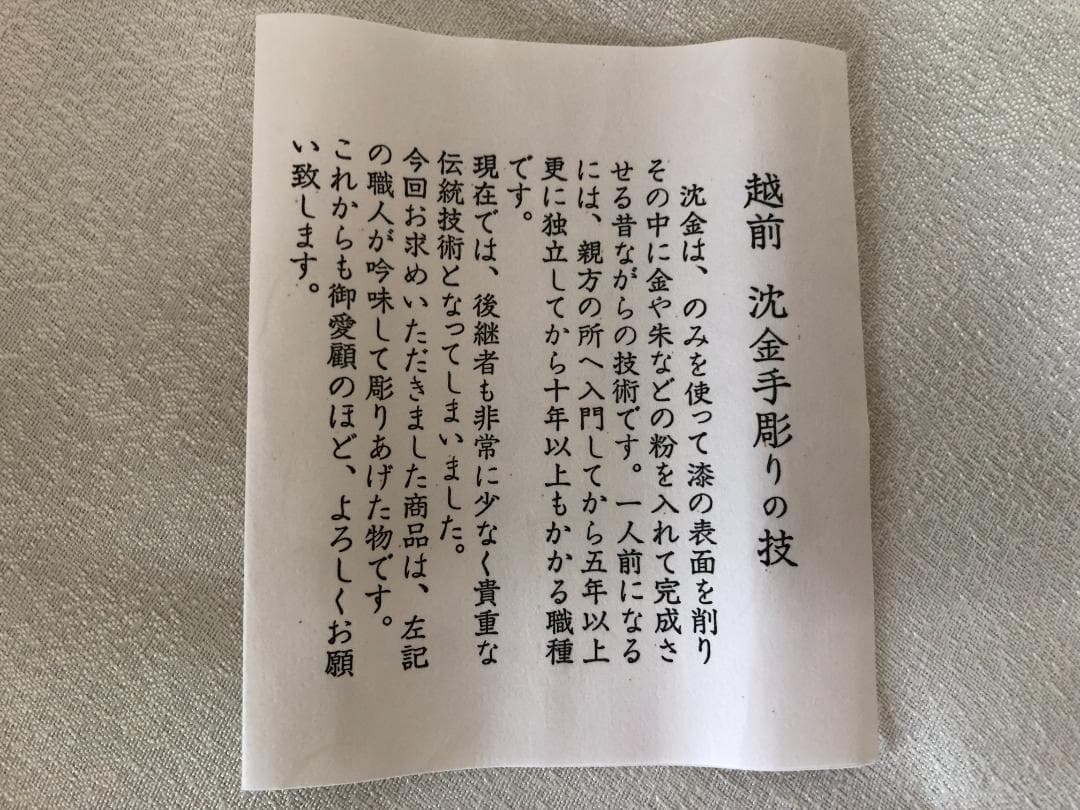 越前　沈金手彫りの技
沈金は、のみを使って漆の表面を削り
その中に金や朱などの粉を入れて完成さ
せる昔ながらの技術です。一人前になる
には、親方の所へ入門してから五年以上
更に独立してから十年以上もかかる職種
です。
現在では、後継者も非常に少なく貴重な
伝統技術となってしまいました。
今回お求めいただきました商品は、左記
の職人が吟味して彫りあげた物です。
これからも御愛顧のほど、よろしくお願
い致します。